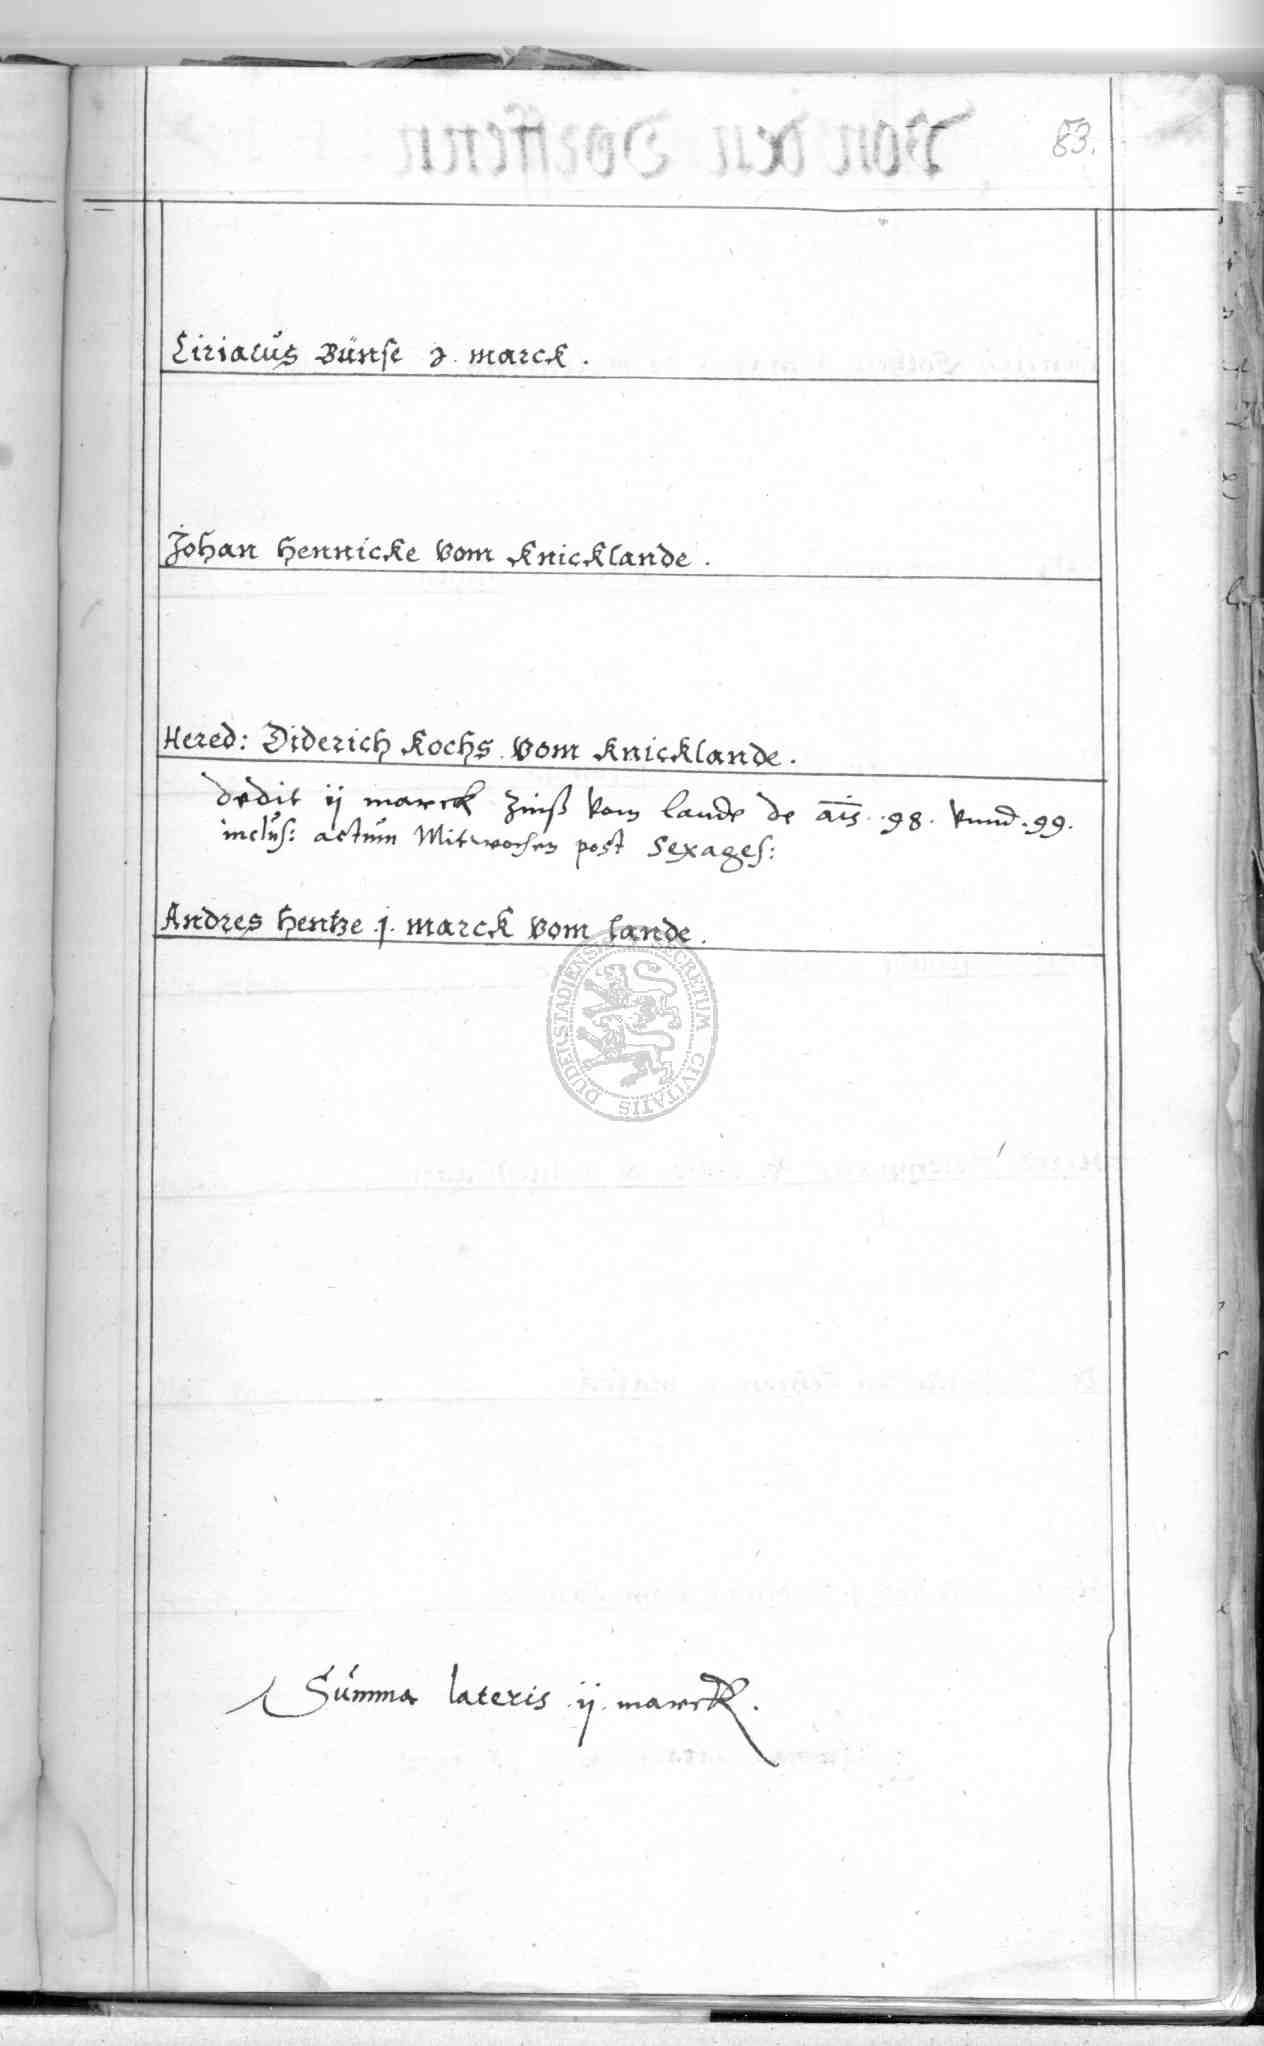 83.
Ciriacus Bünse j marck.
Johan Hennicke vom Knicklande.
Hered: Diderich Kochs vom Knicklande.
dedit ij marck Zinß vom lande de a͞is. 98. vnnd. 99.
inclus: actum Mitwochen post Sexages:
Andres Hentze .j. marck vom lande.
DUDERSTADIENSIS SECRETUM CIVITATIS
Summa lateris .ij. marck.